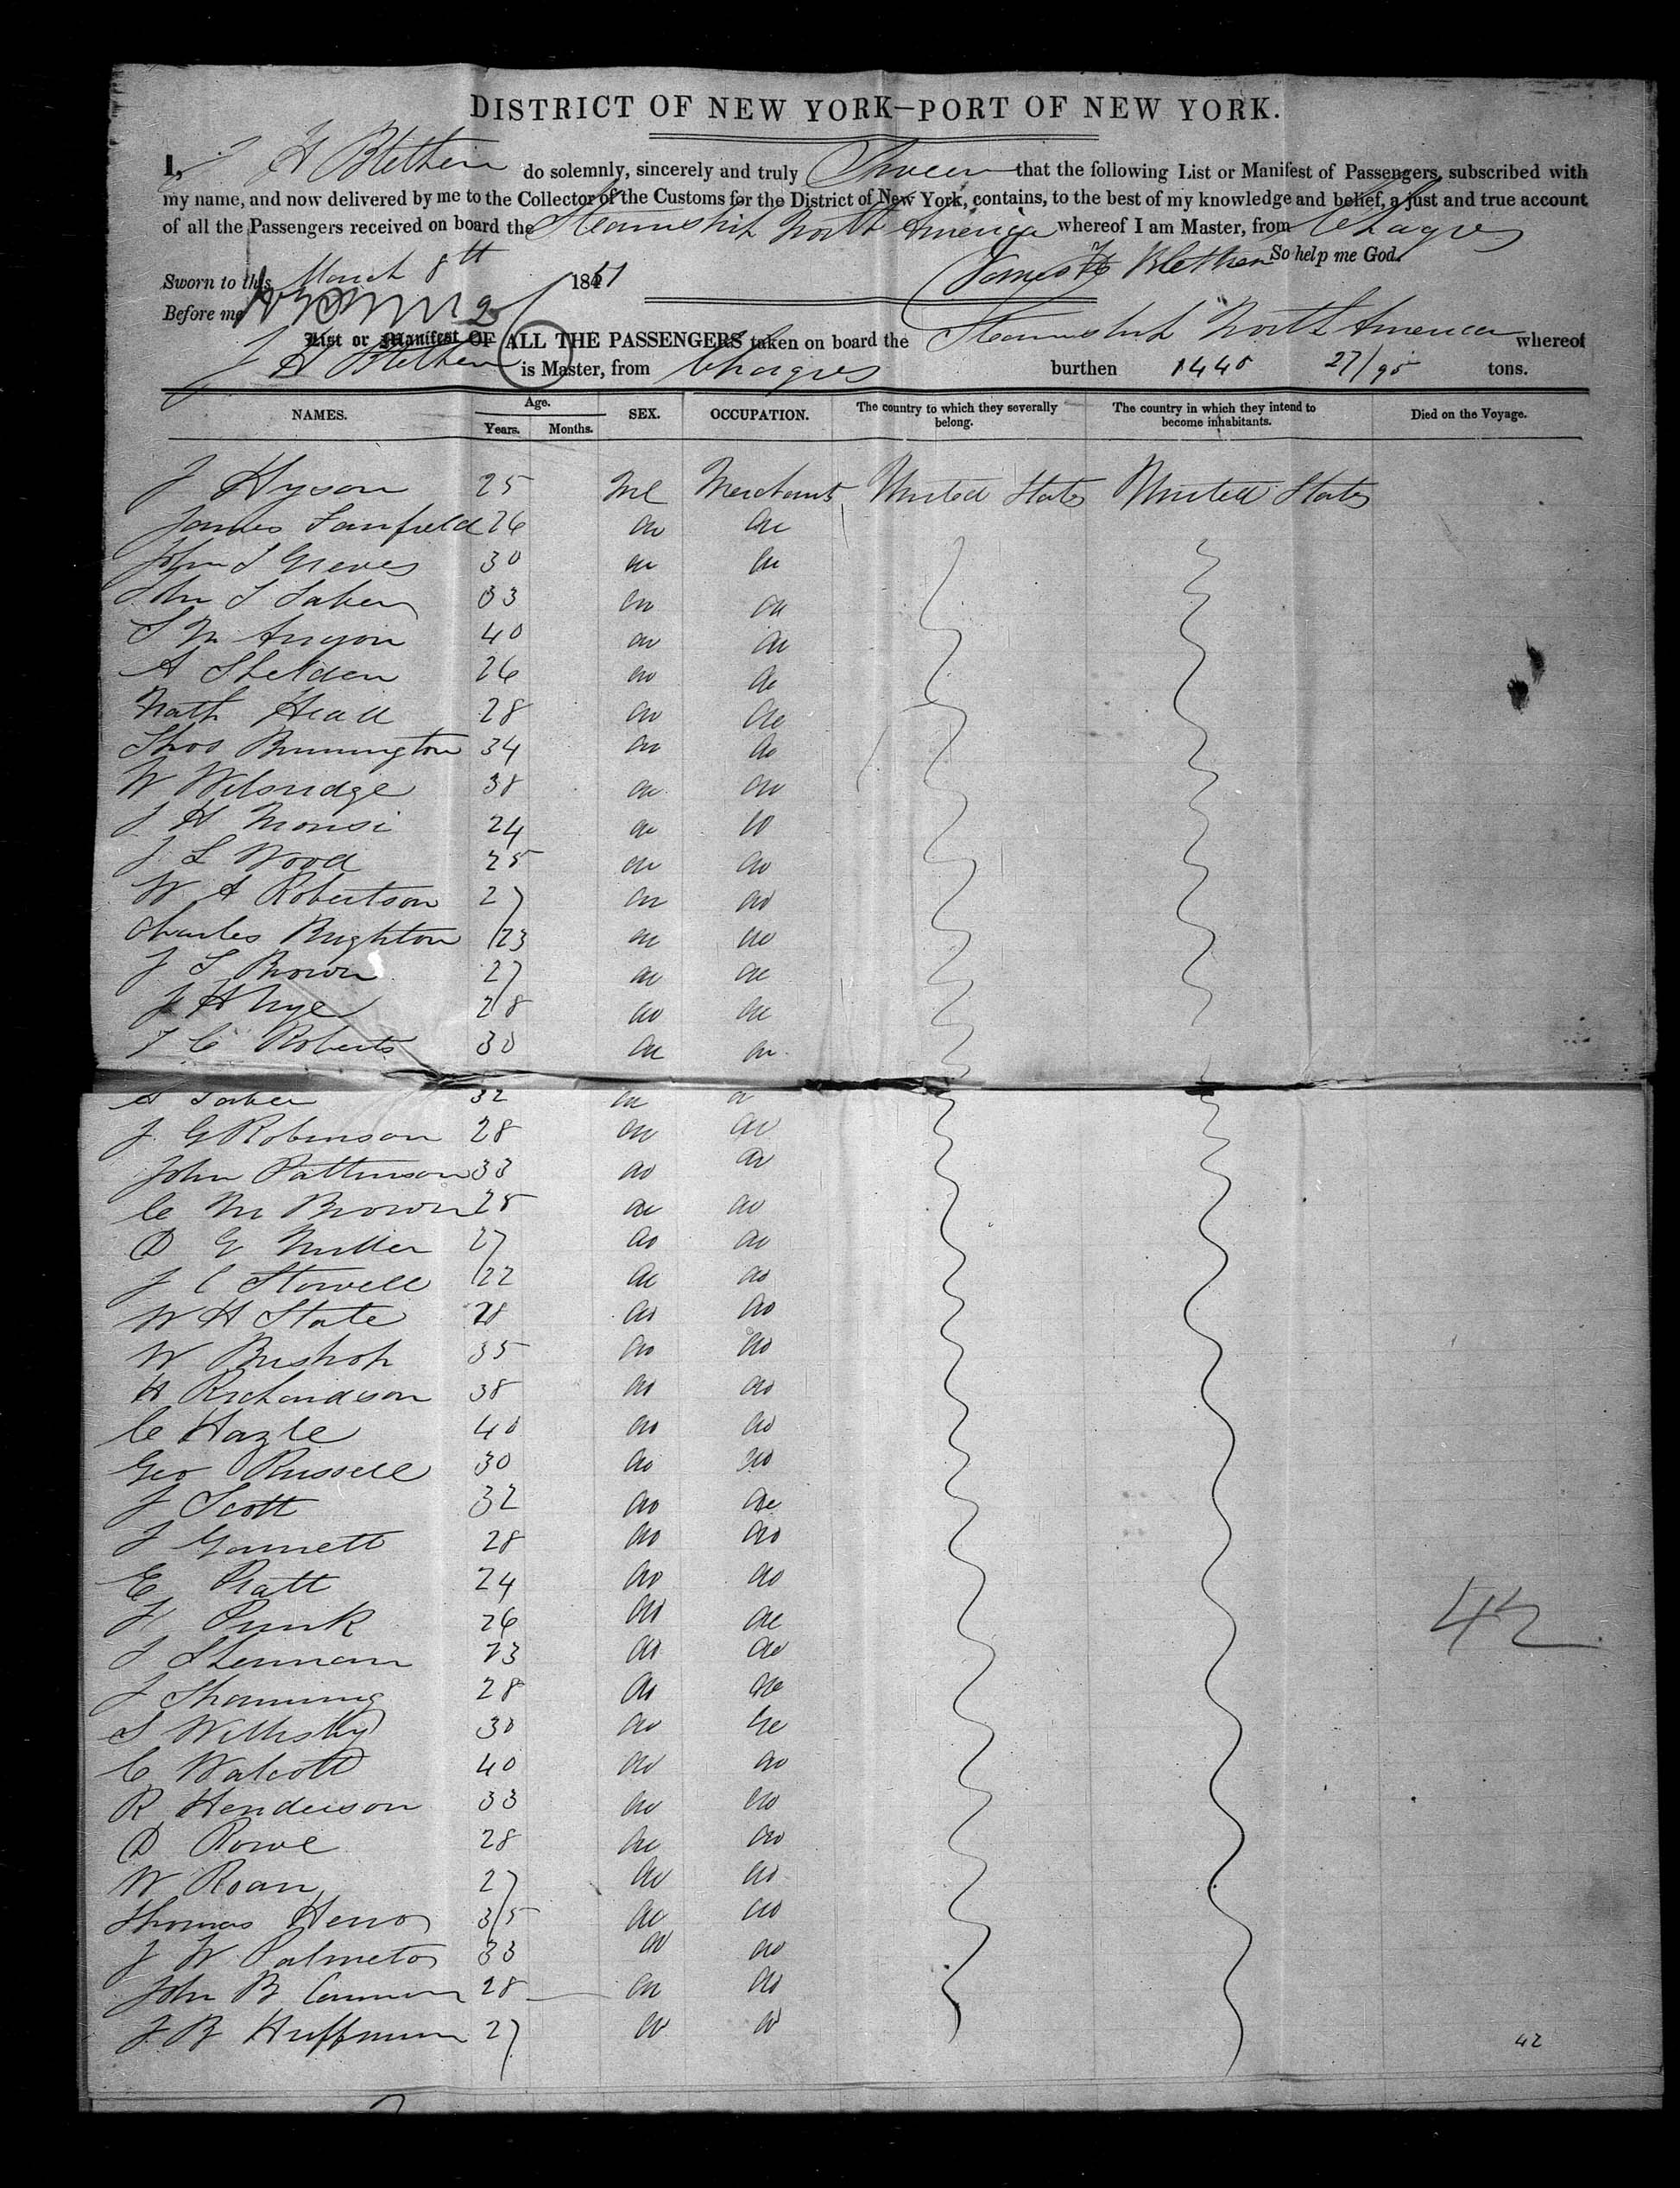 DISTRICT OF NEW YORK—PORT OF NEW YORK.
I, J H Blethen do solemnly, sincerely and truly Swear that the following List or Manifest of Passengers, subscribed with
my name, and now delivered by me to the Collector of the Customs for the District of New York, contains, to the best of my knowledge and belief, a just and true account
of all the Passengers received on board the Steamship North America whereof I am Master, from Chagres
So help me God.
Sworn to this March 8th 1851 James H Blethen
Before me
List or Manifest OF ALL THE PASSENGERS taken on board the Steamship North America whereof
J H Blethen is Master, from Chagres burthen 1440 27/95 tons.
NAMES. Age. Years. Months. SEX. OCCUPATION. The country to which they severally belong. The country in which they intend to become inhabitants. Died on the Voyage.
J Hyson 25 Ml Merchant United States United States
James Sanfield 26 do do
John S Greves 30 do do
John S Saber 33 do do
S M 40 do do
A Shelden 26 do do
Nath Head 28 do do
Thos Bunnington 34 do do
W Wilsridge 38 do do
J H 24 do do
J L Wood 25 do do
W A Robertson 27 do do
Charles Brighton 23 do do
J S Brown 27 do do
J H Nye 28 do do
T C Roberts 30 do do
32 do do
J. G Robinson 28 do do
John Pattinson 33 do do
C M Brown 25 do do
D G Miller 27 do do
J C Stowell 22 do do
W H State 28 do do
W Bishop 35 do do
H Richardson 38 do do
C Hazle 40 do do
Geo Russell 30 do do
J Scott 32 do do
J Garnett 28 do do
E Pratt 24 do do
26 do do
J Sherman 23 do do
J 28 do do
S 30 do do
C Walcott 40 do do
R Henderson 33 do do
D Rowe 28 do do
W Roan 27 do do
Thomas 35 do do
J W Palmeto 33 do do
John B 28 do do
J. B Huffman 27 do do
42
42